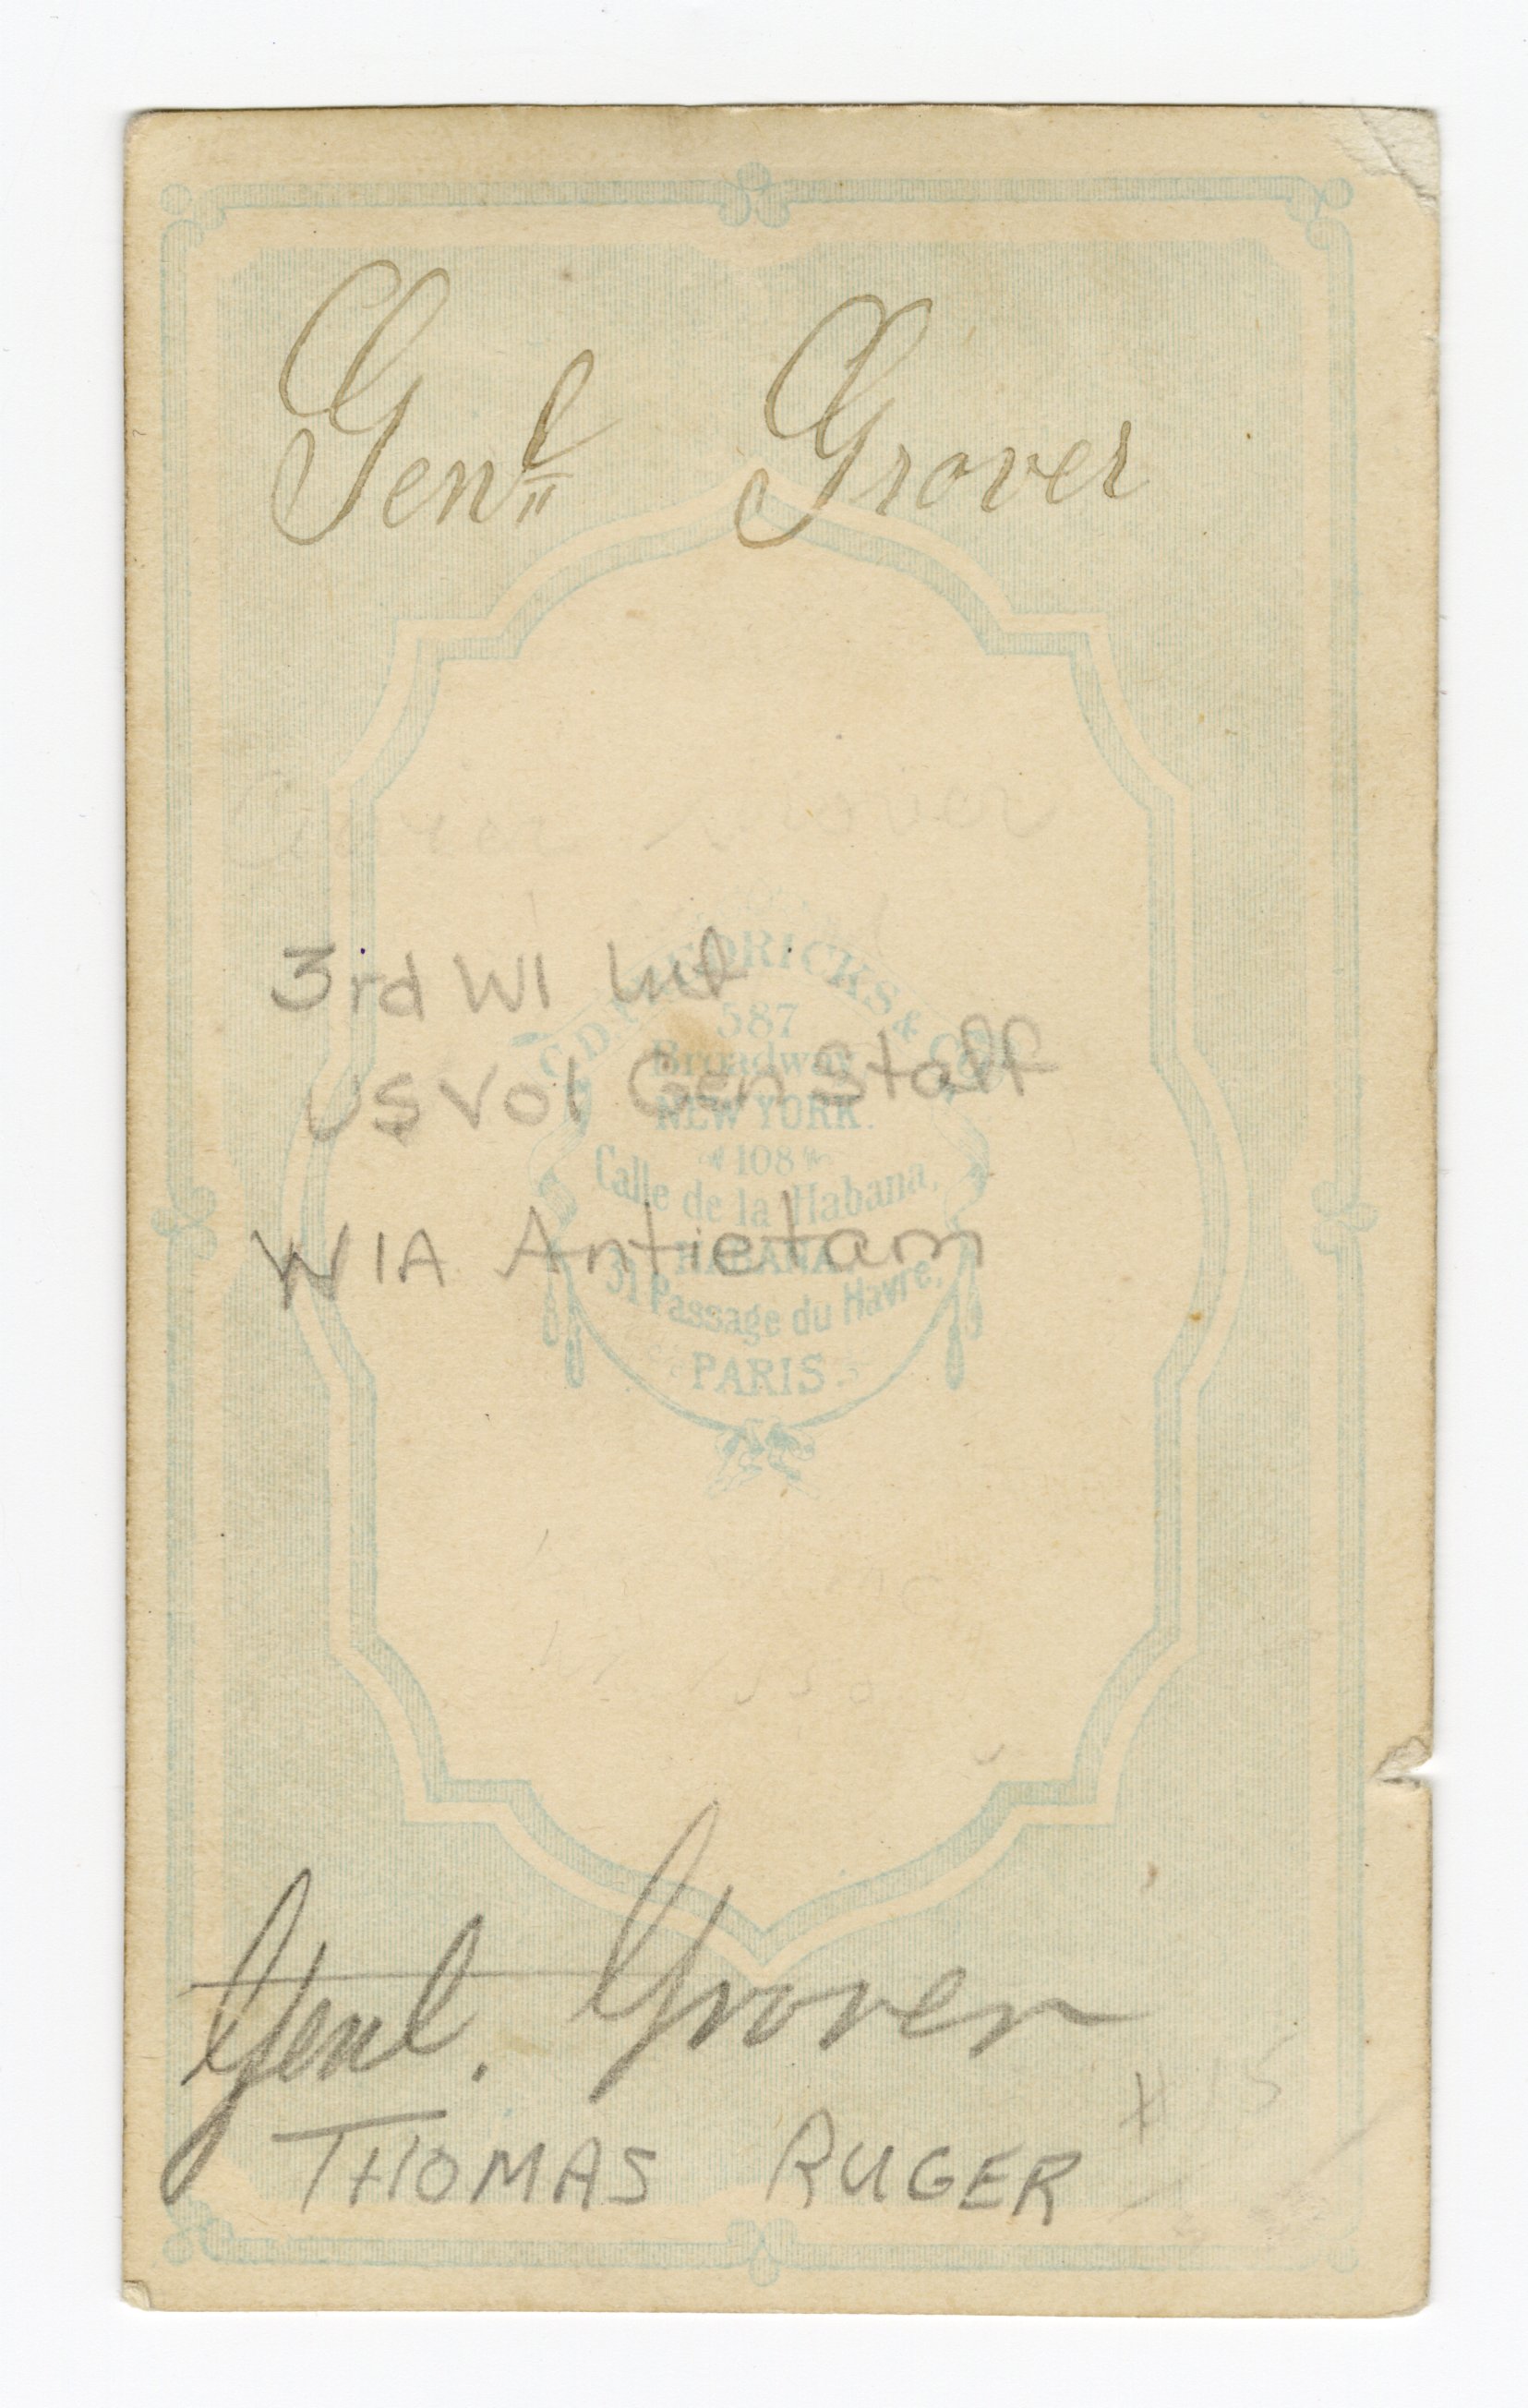 Genl Grover
Grover
3rd WI Inf
US Vol Gen Staff
WIA Antietam
C.D. FREDRICKS & Co.
587
Broadway
NEW YORK.
108
Calle de la Habana,
HABANA
31 Passage du Havre,
PARIS.
Genl. Grover
# 15
THOMAS RUGER